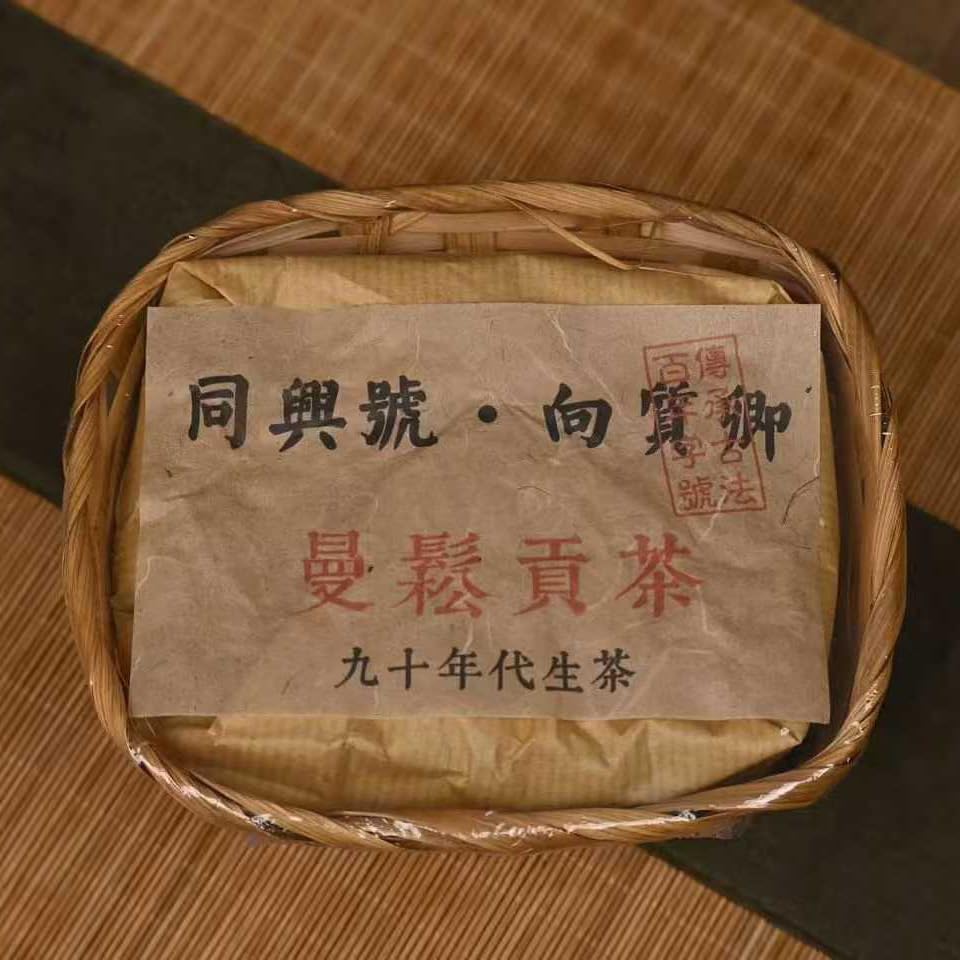 同興號·向寶卿
傳承古法
百年字號
曼鬆貢茶
九十年代生茶